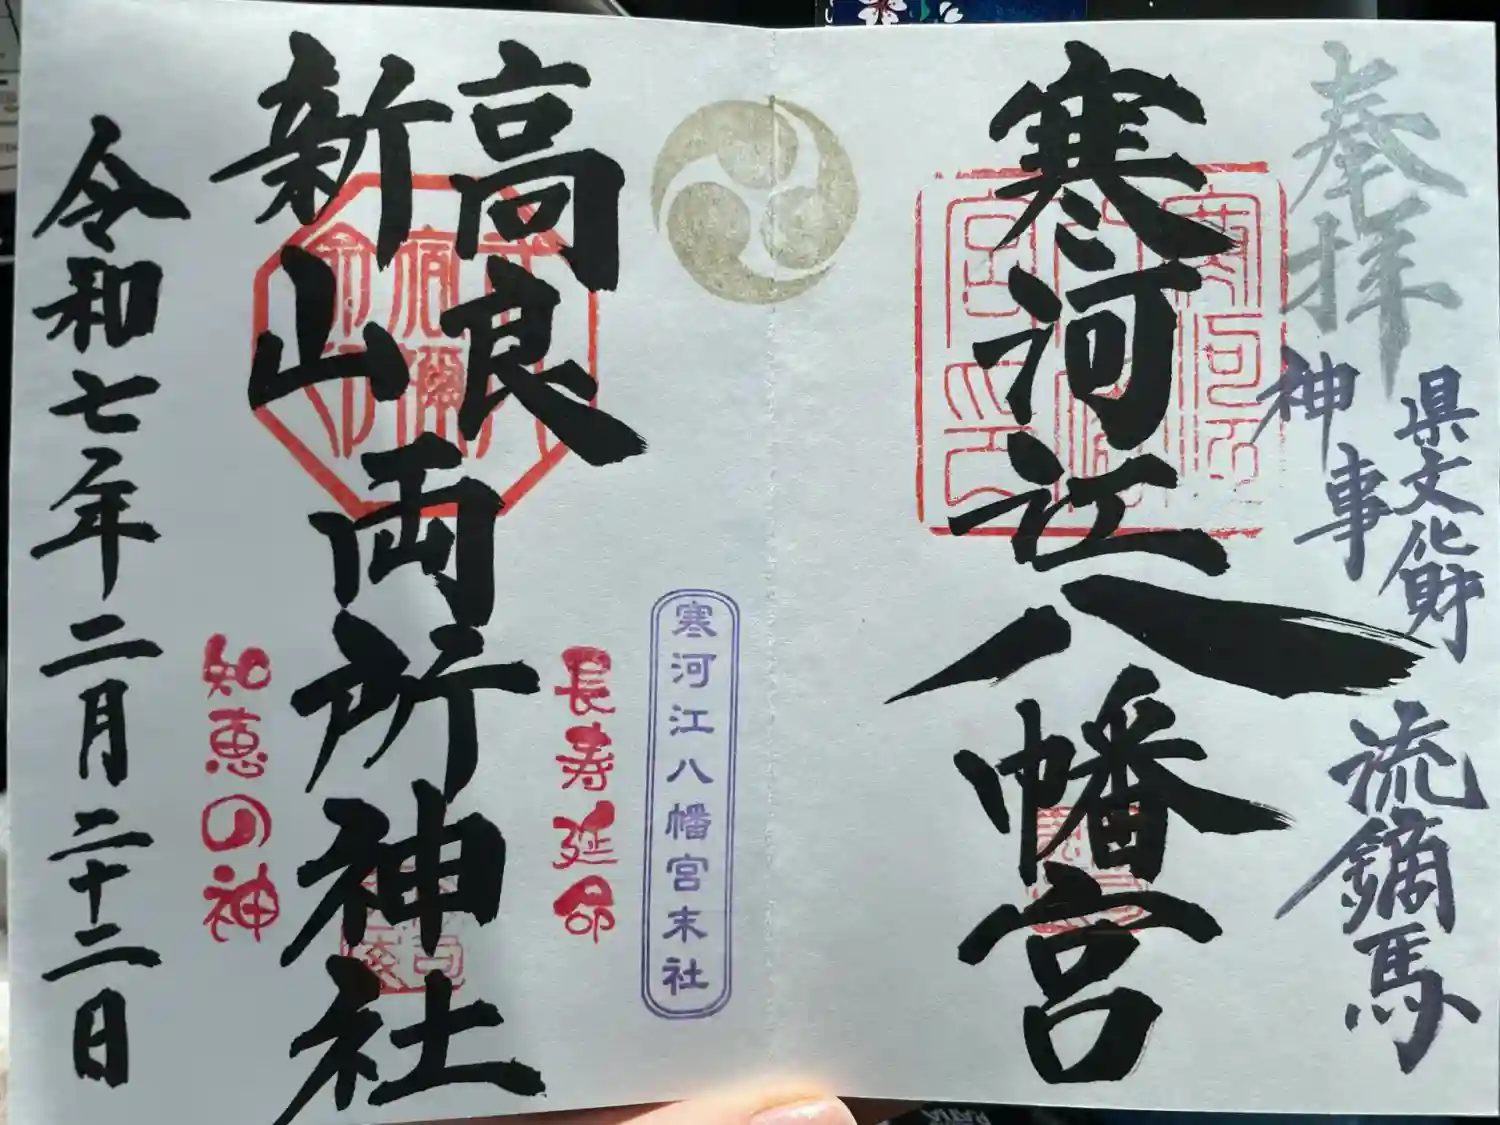 奉拝
県文化財
神事
流鏑馬
寒河江八幡宮
寒河江八幡宮末社
高良
新山
両所神社
長寿延命
知恵の神
令和七年二月二十二日